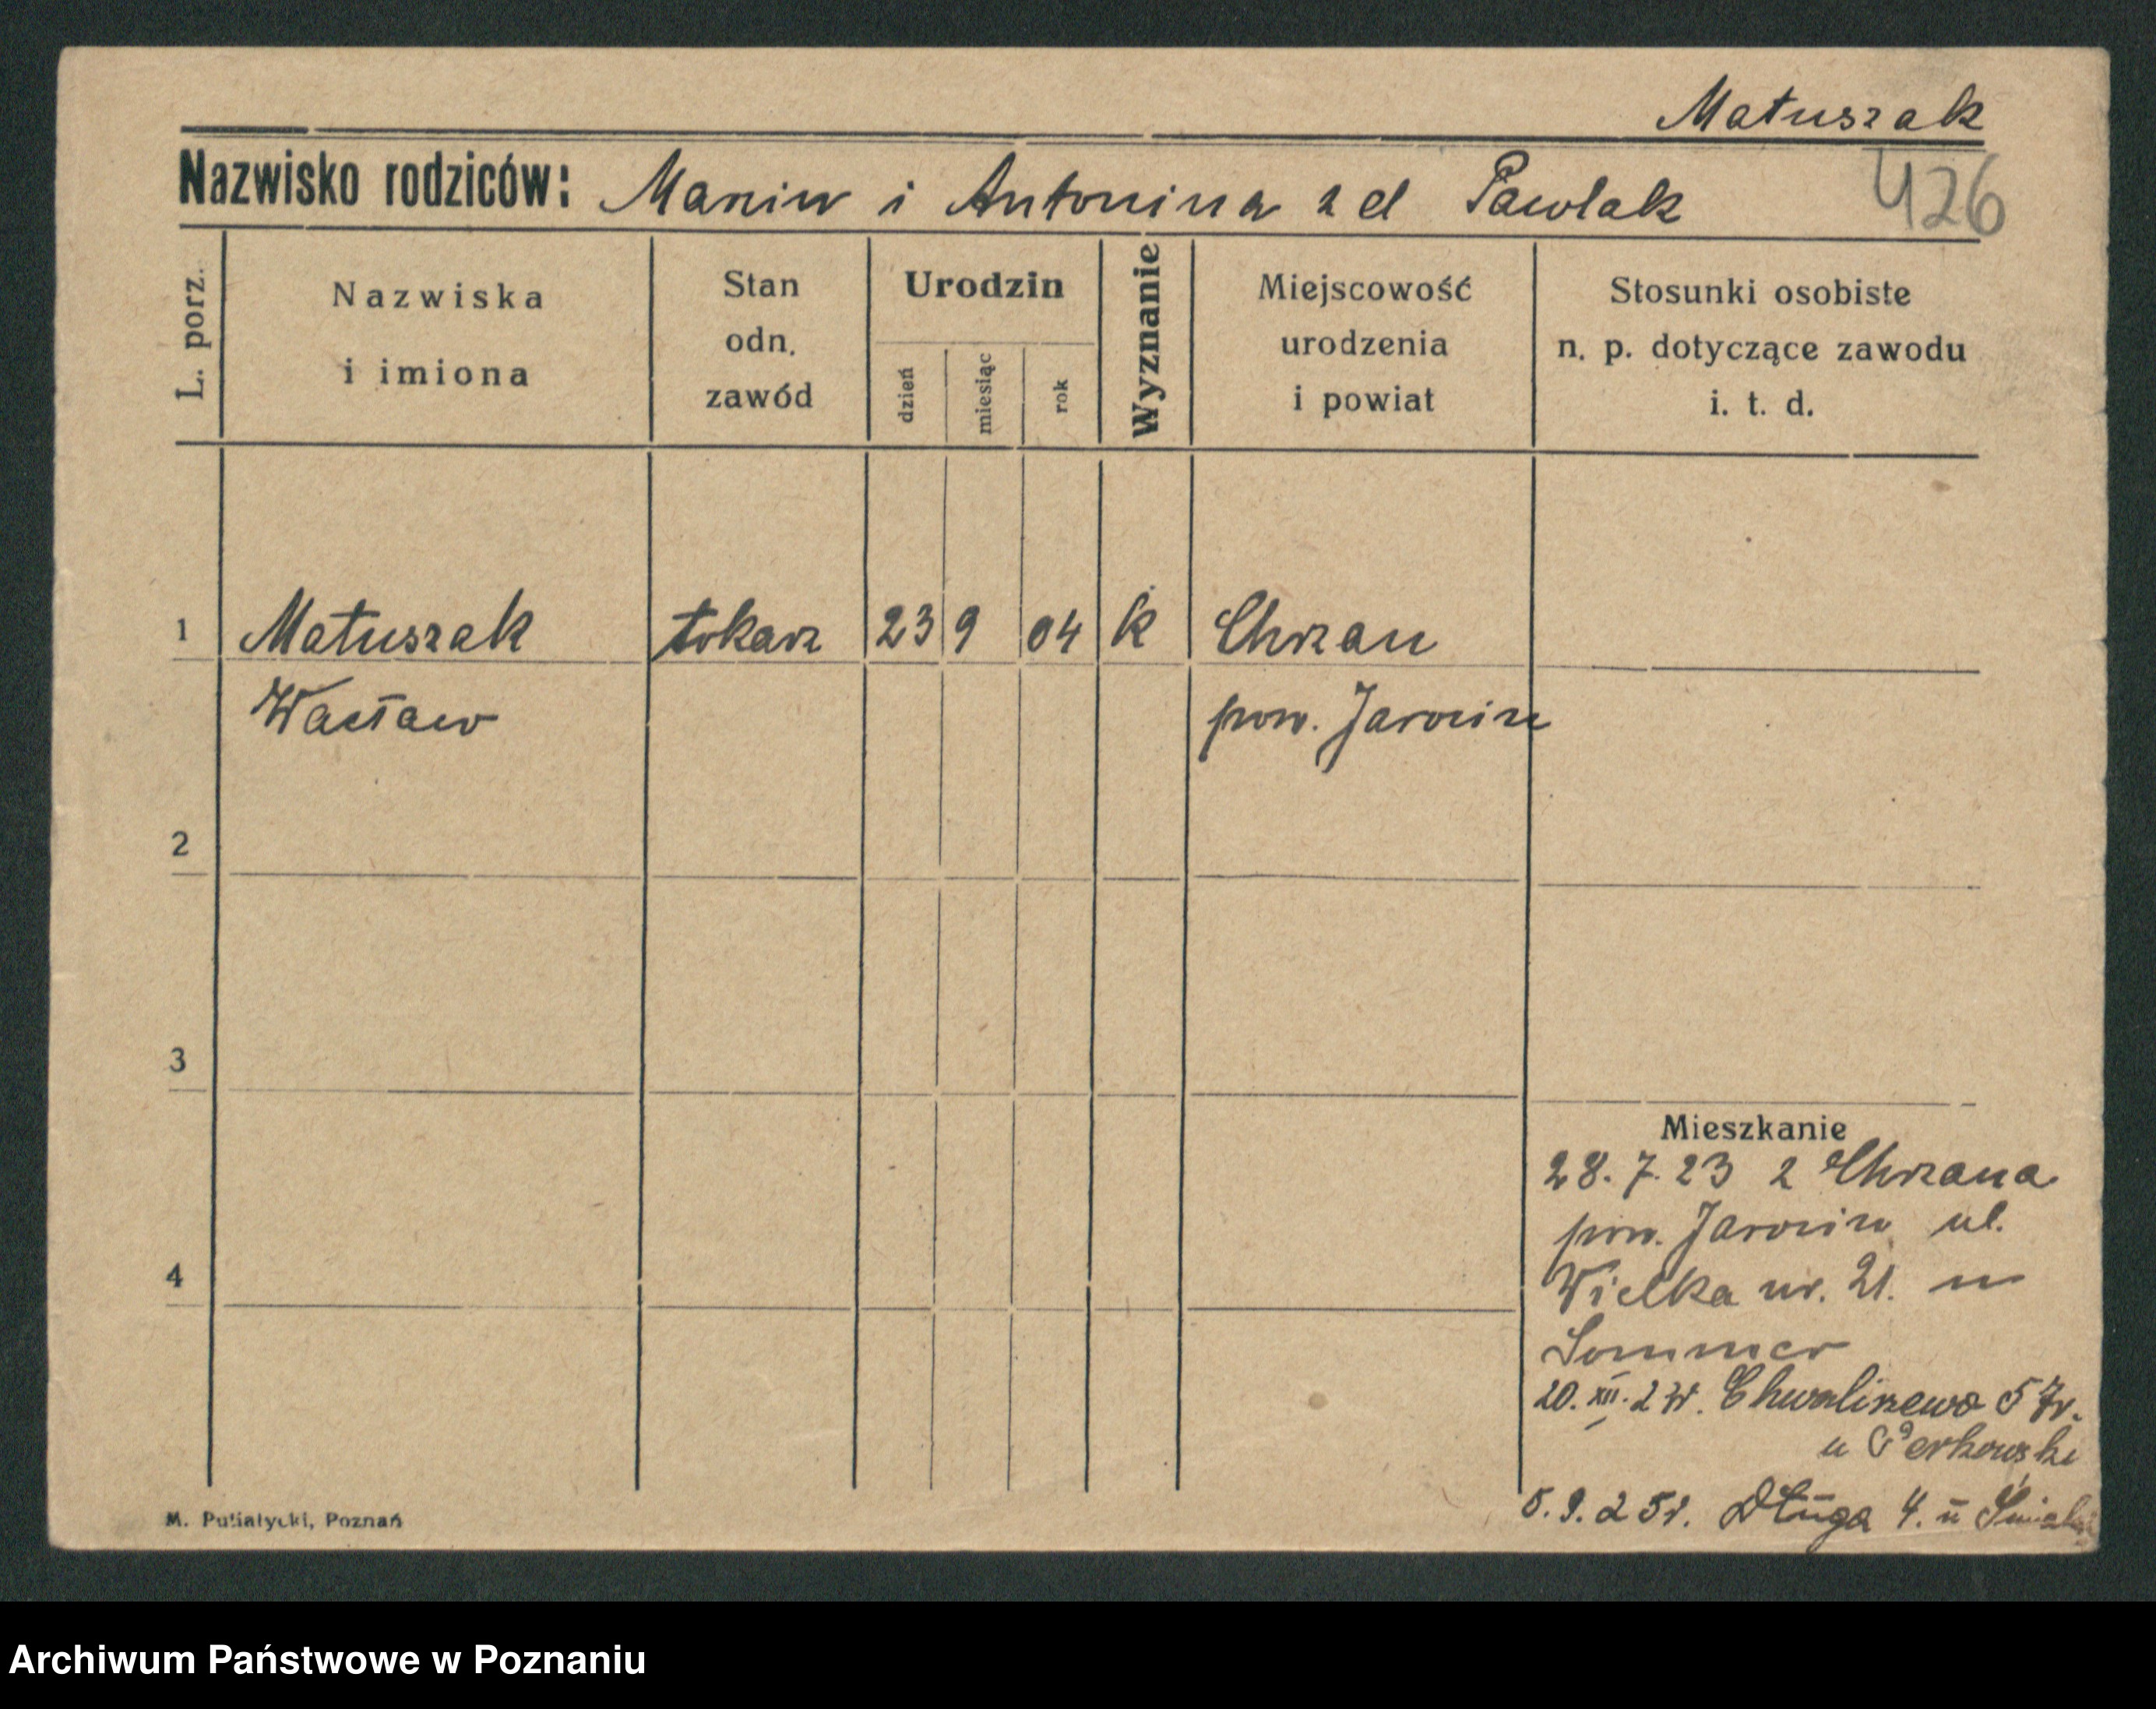 Matuszak
Nazwisko rodziców: Marcin i Antonina z d Pawlak
426
L. porz.
Nazwiska
i imiona
Stan
odn.
zawód
Urodzin
dzień
miesiąc
rok
Wyznanie
Miejscowość
urodzenia
i powiat
Stosunki osobiste
n. p. dotyczące zawodu
i. t. d.
1 Matuszak tokarz 23 9 04 k Chrzan
Wacław pow. Jarocin
2
3
Mieszkanie
28. 7. 23 z Chrzana
pow. Jarocin ul.
4
Wielka nr. 21. u
Sommer
20. XII. Chwaliszewo 57
u
5. 9. 25r. Długa 4. u
M. Putiatycki, Poznań
Archiwum Państwowe w Poznaniu